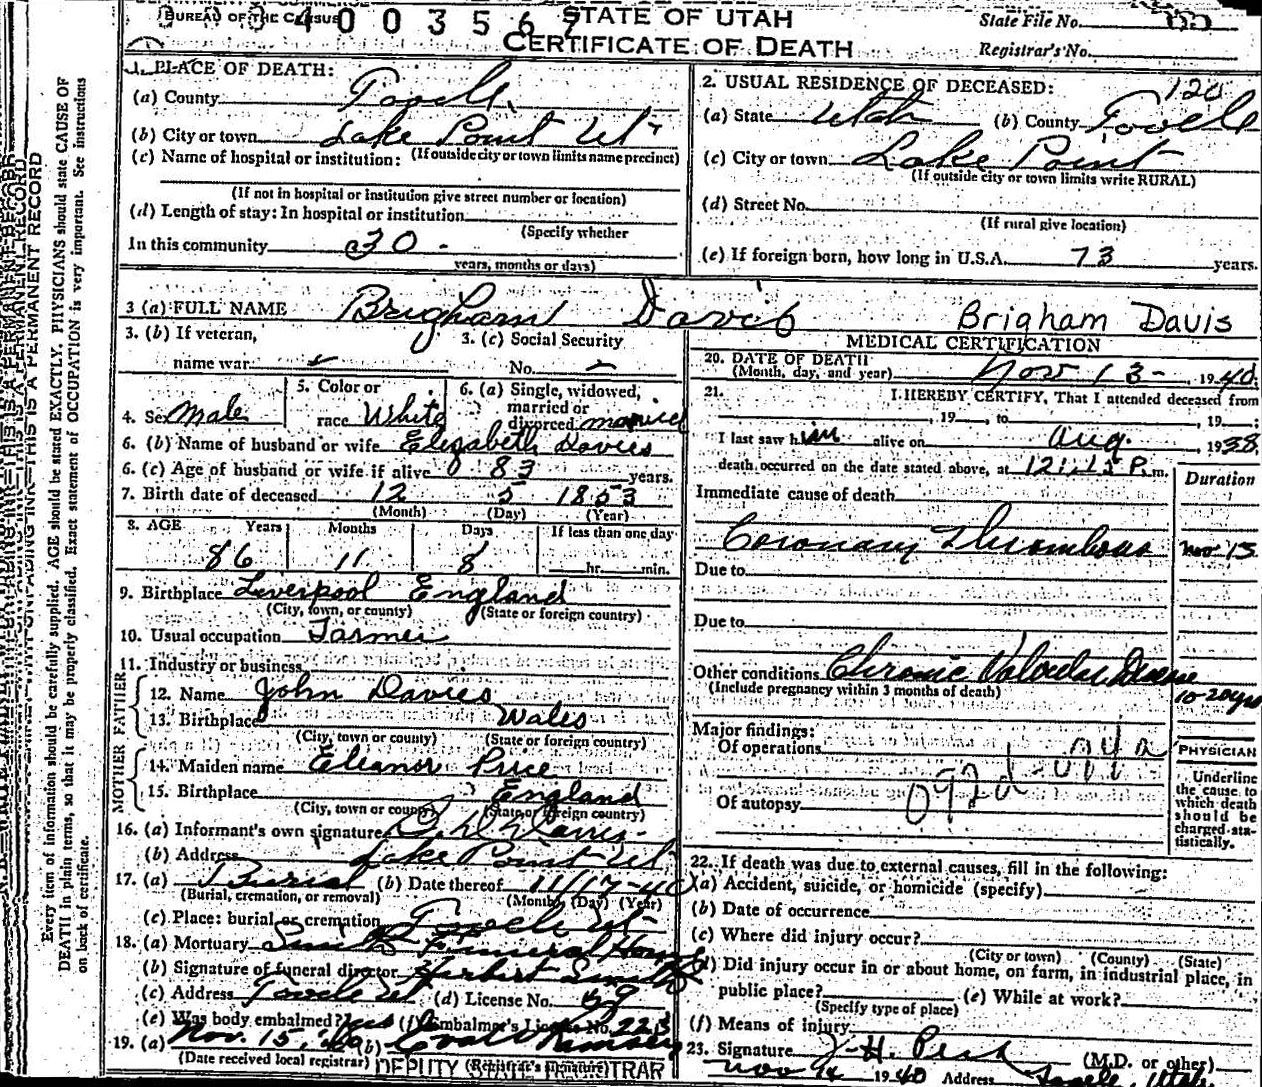 BUREAU OF THE CENSUS
STATE OF UTAH
CERTIFICATE OF DEATH
State File No.
Registrar's No.
1. PLACE OF DEATH:
(a) County Tooele
(b) City or town Lake Point Ut
(If outside city or town limits name precinct)
(c) Name of hospital or institution:
(If not in hospital or institution give street number or location)
(d) Length of stay: In hospital or institution
(Specify whether
In this community 30 -
years, months or days)
2. USUAL RESIDENCE OF DECEASED: 120
(a) State Utah (b) County Tooele
(c) City or town Lake Point
(If outside city or town limits write RURAL)
(d) Street No.
(If rural give location)
(e) If foreign born, how long in U.S.A. 73 years.
3 (a) FULL NAME Brigham Davis Brigham Davis
3. (b) If veteran,
name war
3. (c) Social Security
No.
4. Sex Male
5. Color or
race White
6. (a) Single, widowed,
married or
divorced married
6. (b) Name of husband or wife Elizabeth Davies
6. (c) Age of husband or wife if alive 83 years.
7. Birth date of deceased 12 5 1853
(Month) (Day) (Year)
8. AGE Years Months Days If less than one day
86 11 8 hr. min.
9. Birthplace Liverpool England
(City, town, or county) (State or foreign country)
10. Usual occupation Farmer
11. Industry or business
FATHER
12. Name John Davies
13. Birthplace Wales
(City, town or county) (State or foreign country)
MOTHER
14. Maiden name Eleanor Price
15. Birthplace England
(City, town or county) (State or foreign country)
16. (a) Informant's own signature
(b) Address Lake Point Ut
17. (a) Burial (b) Date thereof 11/17-40
(Burial, cremation, or removal) (Month) (Day) (Year)
(c) Place: burial or cremation Tooele Ut
18. (a) Mortuary Smith Funeral Home
(b) Signature of funeral director Herbert Smith
(c) Address Tooele Ut (d) License No. 69
(e) Was body embalmed? yes (f) Embalmer's License No. 223
19. (a) Nov. 15, (b)
(Date received local registrar) (Registrar's signature)
DEPUTY STATE REGISTRAR
MEDICAL CERTIFICATION
20. DATE OF DEATH
(Month, day, and year) Nov 13 - , 1940
21. I HEREBY CERTIFY, That I attended deceased from
, 19 , to , 19 ;
I last saw him alive on Aug. 1938
death occurred on the date stated above, at 12:15 P. m.
Duration
Immediate cause of death
Coronary Thrombosis Nov 13
Due to
Due to
Other conditions Chronic Valvular Disease 10-20 yrs
(Include pregnancy within 3 months of death)
Major findings:
Of operations
Of autopsy
PHYSICIAN
Underline
the cause to
which death
should be
charged sta-
tistically.
22. If death was due to external causes, fill in the following:
(a) Accident, suicide, or homicide (specify)
(b) Date of occurrence
(c) Where did injury occur?
(City or town) (County) (State)
(d) Did injury occur in or about home, on farm, in industrial place, in
public place? (e) While at work?
(Specify type of place)
(f) Means of injury
23. Signature J. H. Peck (M.D. or other)
Nov 14 1940 Address Tooele, Utah
Every item of information should be carefully supplied. AGE should be stated EXACTLY. PHYSICIANS should state CAUSE OF
DEATH in plain terms, so that it may be properly classified. Exact statement of OCCUPATION is very important. See instructions
on back of certificate.